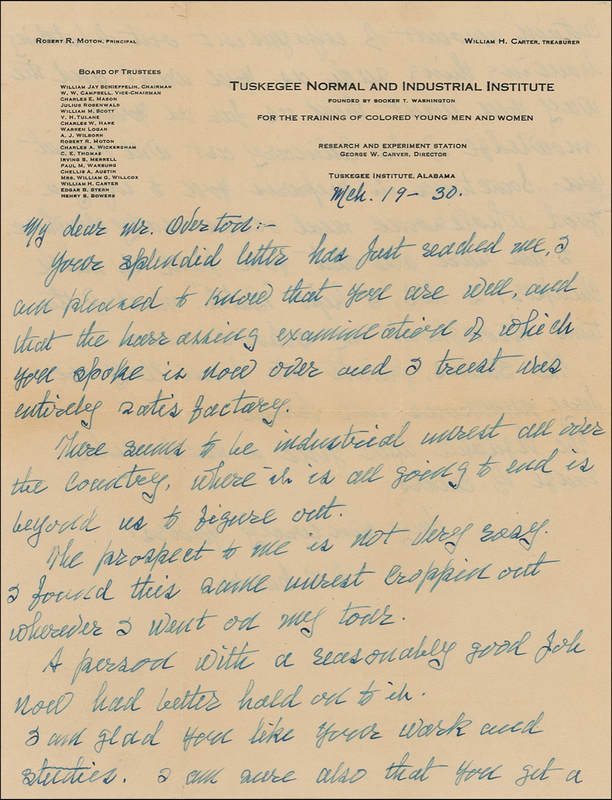 Robert R. Moton, Principal
William H. Carter, Treasurer
Board of Trustees
William Jay Schieffelin, Chairman
W. W. Campbell, Vice-Chairman
Charles E. Mason
Julius Rosenwald
William M. Scott
V. H. Tulane
Charles W. Hare
Warren Logan
A. J. Wilborn
Robert R. Moton
Charles A. Wickersham
C. E. Thomas
Irving S. Merrell
Paul M. Warburg
Chellis A. Austin
Mrs. William G. Willcox
William H. Carter
Edgar B. Stern
Henry S. Bowers
Tuskegee Normal and Industrial Institute
Founded by Booker T. Washington
For the Training of Colored Young Men and Women
Research and Experiment Station
George W. Carver, Director
Tuskegee Institute, Alabama
Mch. 19-30.
My dear Mr. Overton:-
Your splendid letter has just reached me, I
am pleased to know that you are well, and
that the harrassing examination of which
you spoke is now over and I trust was
entirely satisfactory.
There seems to be industrial unrest all over
the Country, where it is all going to end is
beyond us to figure out.
The prospect to me is not very rosy.
I found this same unrest croppin out
wherever I went on my tour.
A person with a reasonably good job
now had better hold on to it.
I am glad you like your work and
studies. I am sure also that you get a